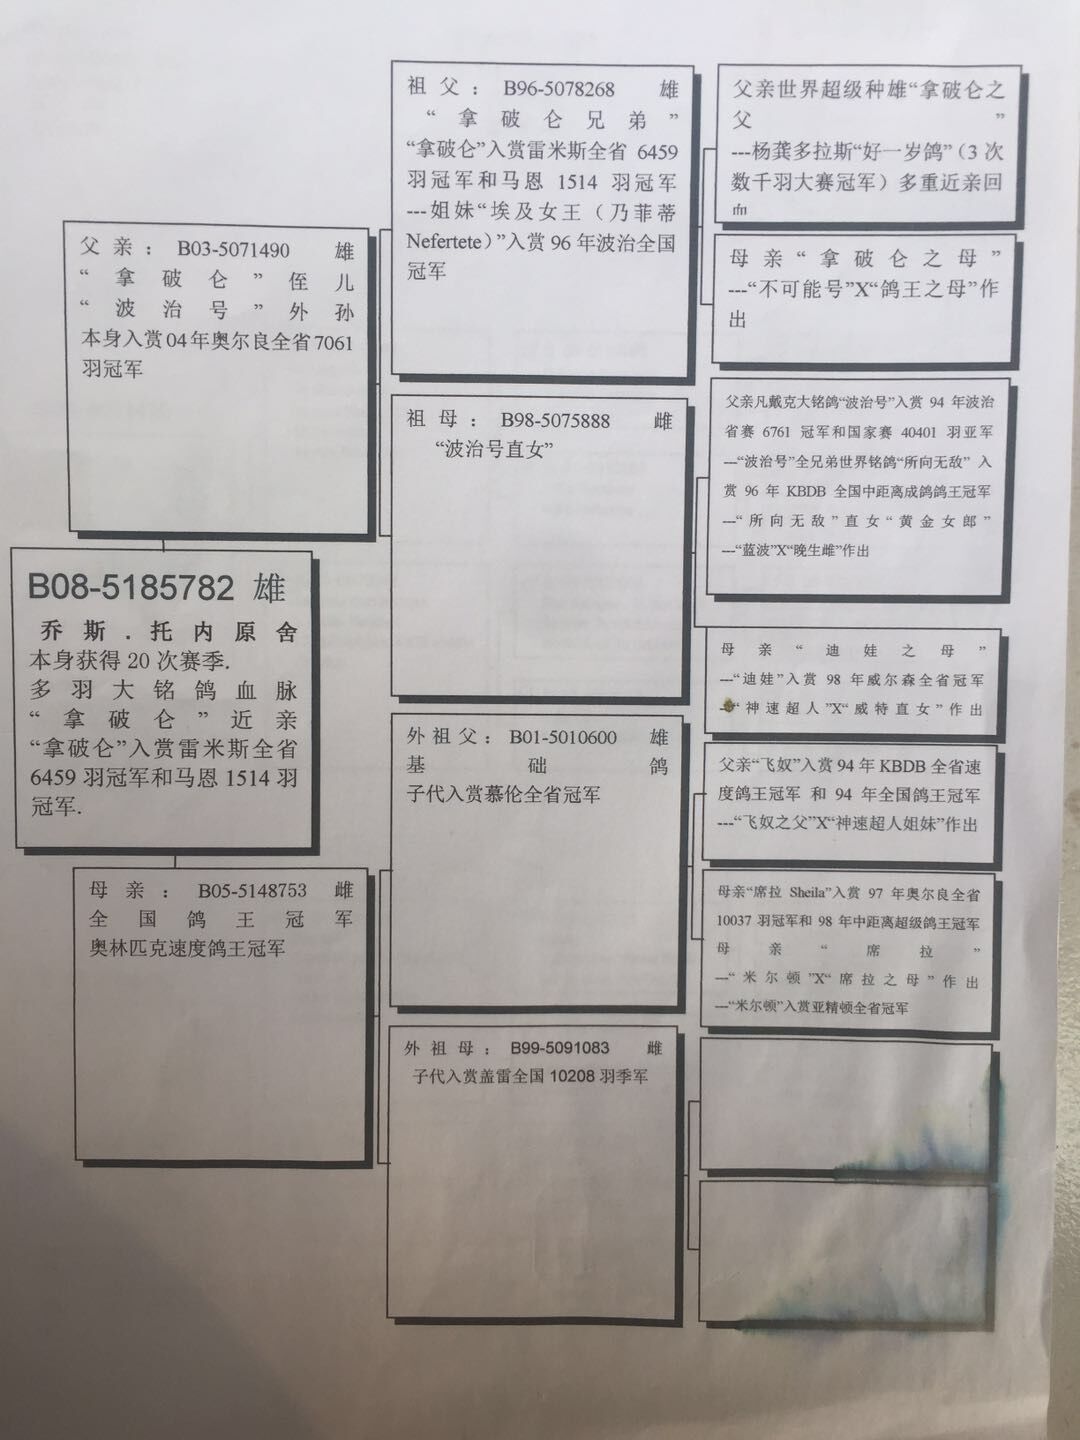 B08-5185782 雄
乔斯.托内原舍
本身获得20次赛季.
多羽大铭鸽血脉
“拿破仑”近亲
“拿破仑”入赏雷米斯全省
6459羽冠军和马恩1514羽
冠军.
父亲：B03-5071490 雄
“拿破仑”侄儿
“波治号”外孙
本身入赏04年奥尔良全省7061
羽冠军
母亲：B05-5148753 雌
全国鸽王冠军
奥林匹克速度鸽王冠军
祖父：B96-5078268 雄
“拿破仑兄弟”
“拿破仑”入赏雷米斯全省 6459
羽冠军和马恩 1514 羽冠军
---姐妹“埃及女王（乃菲蒂
Nefertete）”入赏96年波治全国
冠军
祖母：B98-5075888 雌
“波治号直女”
外祖父：B01-5010600 雄
基础鸽
子代入赏慕伦全省冠军
外祖母：B99-5091083 雌
子代入赏盖雷全国10208羽季军
父亲世界超级种雄“拿破仑之
父”
---杨龚多拉斯“好一岁鸽”（3次
数千羽大赛冠军）多重近亲回
母亲“拿破仑之母”
---“不可能号”X“鸽王之母”作
出
父亲凡戴克大铭鸽“波治号”入赏 94 年波治
省赛 6761 冠军和国家赛 40401 羽亚军
---“波治号”全兄弟世界铭鸽“所向无敌” 入
赏 96 年 KBDB 全国中距离成鸽鸽王冠军
---“所向无敌”直女“黄金女郎”
---“蓝波”X“晚生雌”作出
母亲“迪娃之母”
---“迪娃”入赏 98 年威尔森全省冠军
---“神速超人”X“威特直女”作出
父亲“飞奴”入赏94年KBDB全省速
度鸽王冠军 和 94 年全国鸽王冠军
---“飞奴之父”X“神速超人姐妹”作出
母亲“席拉 Sheila”入赏 97 年奥尔良全省
10037 羽冠军和 98 年中距离超级鸽王冠军
母亲“席拉”
---“米尔顿”X“席拉之母”作出
---“米尔顿”入赏亚精顿全省冠军